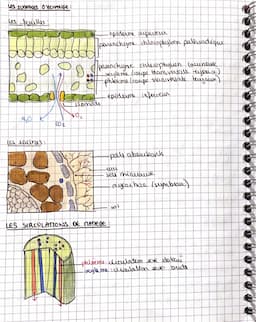 LES SURFACES D'ECHANGE:
Les feuilles
épiderme supérieur
parenchyme chlorophyllien palissadique
parenchyme chlorophyllien lacuneux
xylème (coupe transversale
phloème (coupe transversale
épiderme inférieur
stomate
H₂O
O₂
CO₂
Les racines:
poils absorbants
eau
sels minéraux
mycorhize (symbiose)
sol
LES CIRCULATIONS DE MATIERE:
phloème: circulation sève
xylème: circulation sève brute